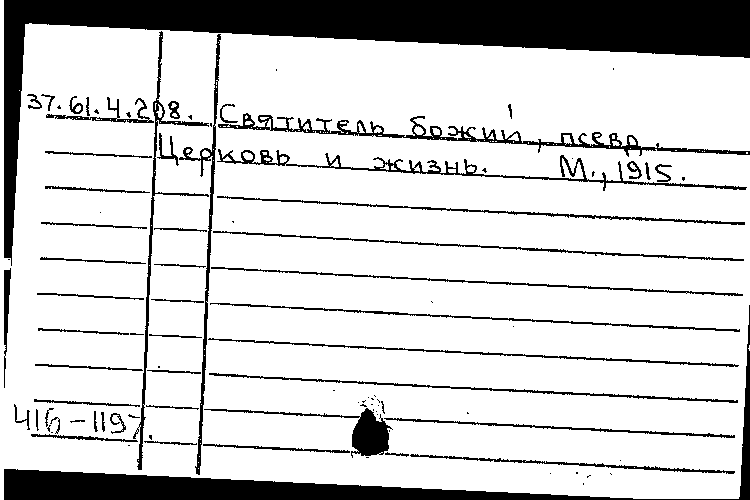 37.61.4.208. Святитель божий, псевд.
Церковь и жизнь. М., 1915.
416-1197.